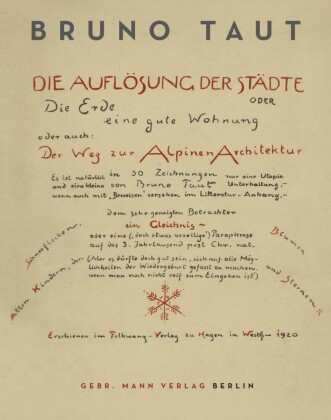 BRUNO TAUT
DIE AUFLÖSUNG DER STÄDTE
ODER
Die Erde
eine gute Wohnung
oder auch:
Der Weg zur Alpinen Architektur
Es ist natürlich in 30 Zeichnungen nur eine Utopie
und eine kleine von Bruno Taut Unterhaltung,-
wenn auch mit „Beweisen" versehen im Litteratur-Anhang,-
dem sehr geneigten Betrachter
ein Gleichnis -
oder eine (, doch etwas voreilige) Paraphrase
auf das 3. Jahrtausend post Chr. nat.
(Aber es dürfte doch gut sein, sich auf alle Mög-
lichkeiten der Wiedergeburt gefasst zu machen,
wenn man noch nicht reif zum Eingehen ist)
Allen Kindern, den Schneeflocken, Blumen und Sternen
Erschienen im Folkwang-Verlag zu Hagen in Westf. 1920
GEBR. MANN VERLAG BERLIN